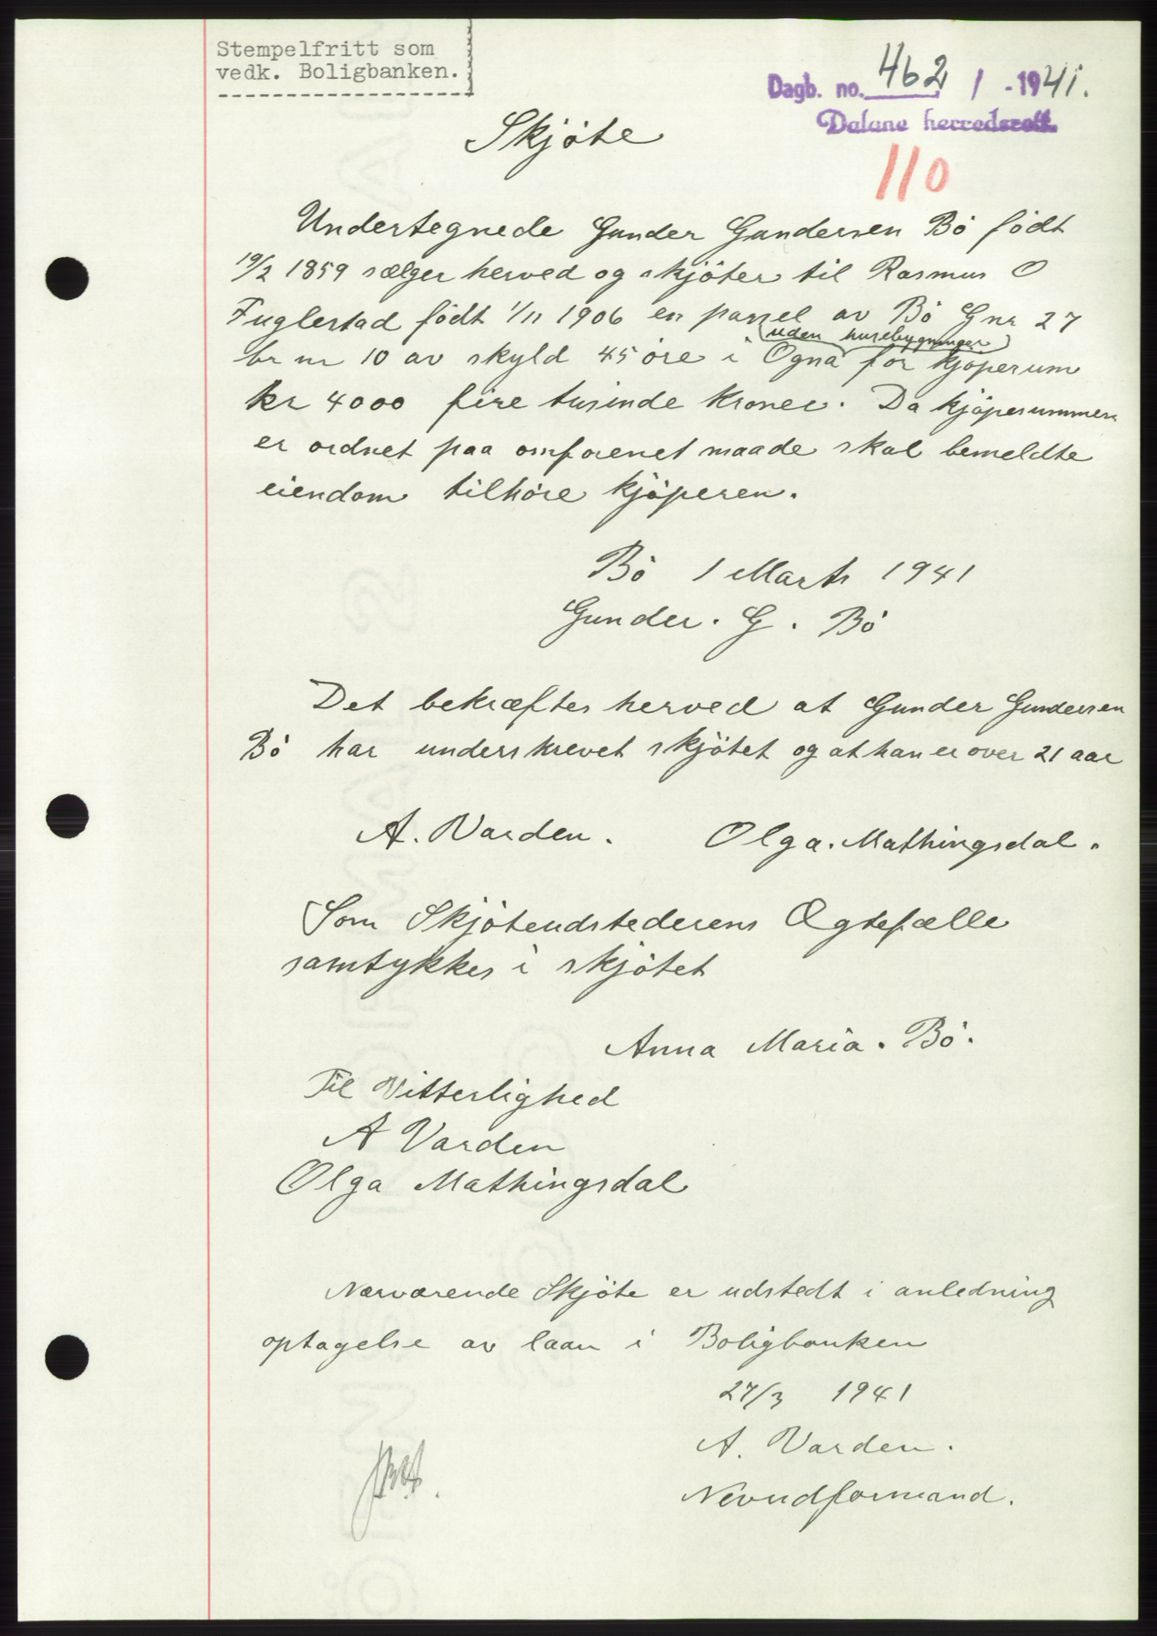 Stempelfritt som
vedk. Boligbanken.
Dagb. no. 462 / -1941.
Dalane herredsrett.
110
Skjöte
Undertegnede Gunder Gundersen Bö födt
19/2 1859 sælger herved og skjöter til Rasmus O
Fuglestad födt 1/11 1906 en parsel av Bö Gnr 27
(uden husebygninger)
br nr 10 av skyld 45 öre i Ogna for kjöpesum
kr 4000 fire tusinde kroner. Da kjöpesummen
er ordnet paa omforenet maade skal bemeldte
eiendom tilhöre kjöperen.
Bö 1 Marts 1941
Gunder. G. Bö
Det bekræftes herved at Gunder Gundersen
Bö har underskrevet skjötet og at han er over 21 aar
A. Varden. Olga. Mathingsdal.
Som Skjöteudstederens Ægtefælle
samtykkes i skjötet
Anna Maria. Bö.
Til Vitterlighed
A Varden
Olga Mathingsdal
Nærværende Skjöte er udstedt i anledning
optagelse av laan i Boligbanken
27/3 1941
A. Varden.
Nevndformand.